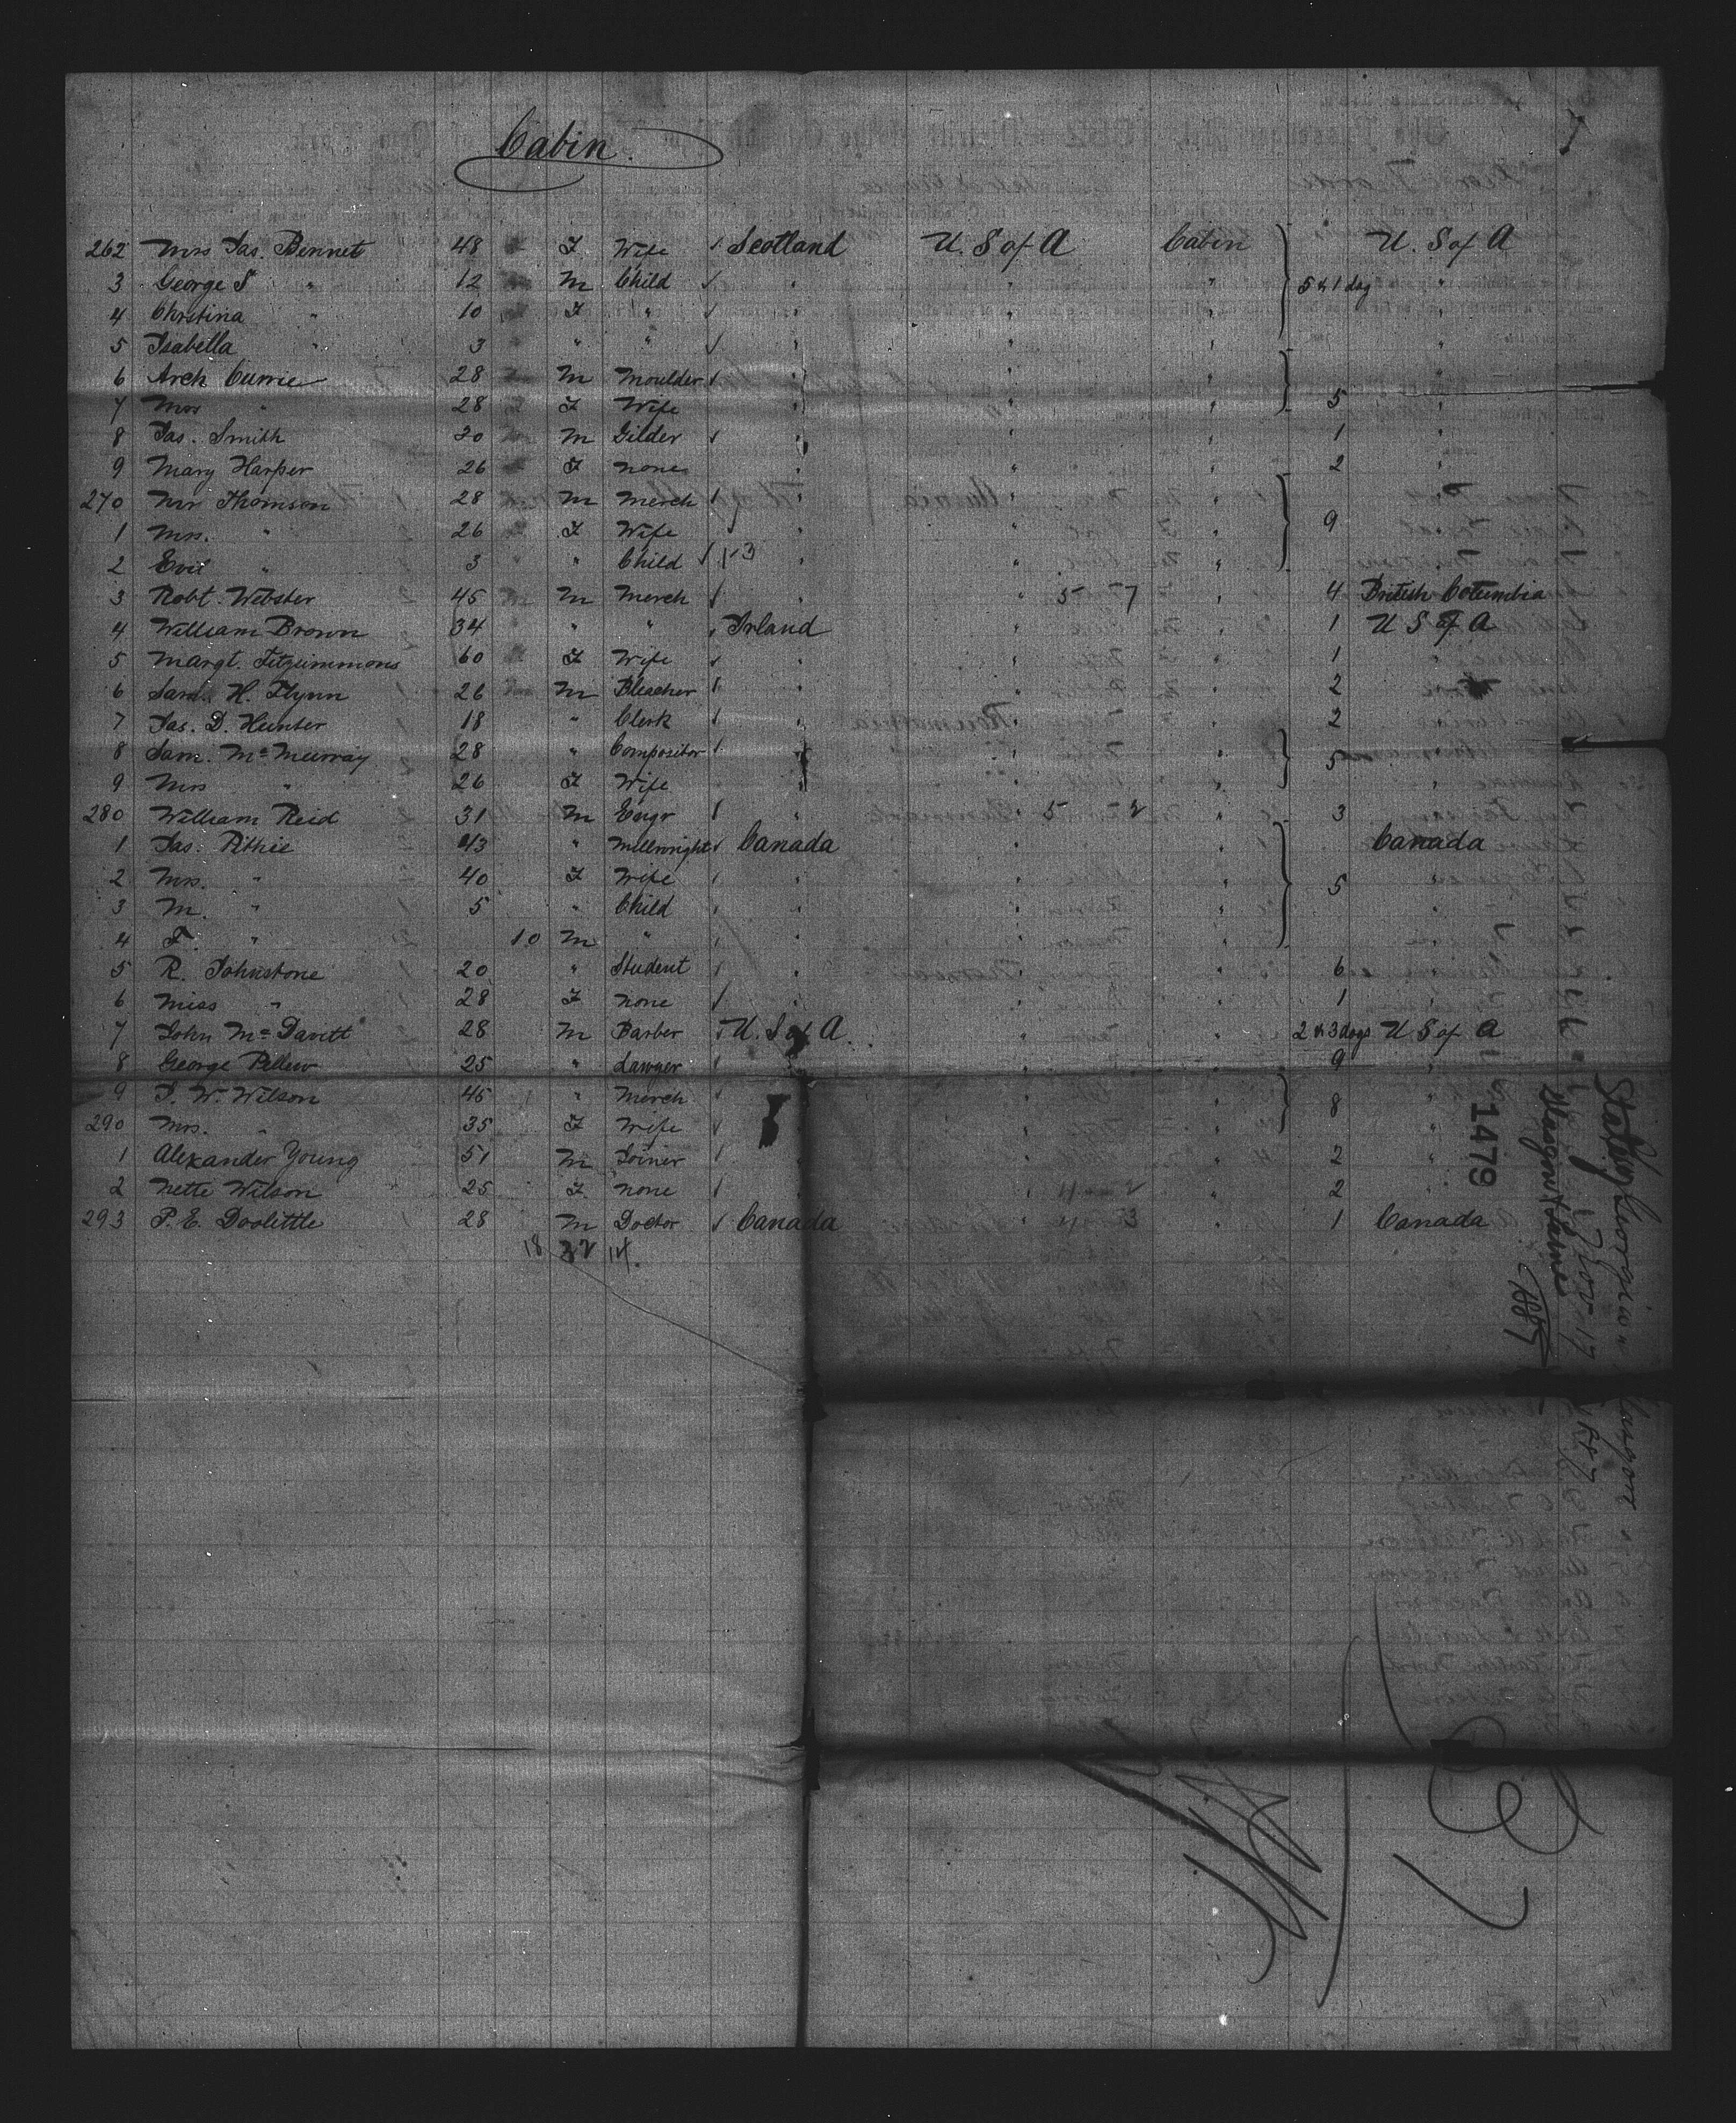 Cabin.
262 Mrs Jas. Bennet 48 F Wife Scotland U. S of A Cabin U. S of A
3 George S " 12 M Child " " " 5 & 1 bag "
4 Christina " 10 F " " " " "
5 Isabella " 3 " " " " " "
6 Arch Currie 28 M Moulder " " " "
7 Mrs " 28 F Wife " " " 5 "
8 Jas. Smith 30 M Gilder " " " 1 "
9 Mary Harper 26 F none " " " 2 "
270 Mr Thomson 28 M Merch " " "
1 Mrs. " 26 F Wife " " " 9
2 " 3 " Child 1-3 " " "
3 Robt. Webster 45 M Merch " " 5 7 " 4 British Columbia
4 William Brown 34 " " Irland " " 1 U S of A
5 Margt. Fitzsimmons 60 F Wife " " " 1 "
6 Saml. H. Flynn 26 M Bleacher " " " 2 "
7 Jas. D. Hunter 18 " Clerk " " " 2 "
8 Sam. Mc Murray 28 " Compositor " " " 5 "
9 Mrs " 26 F Wife " " " "
280 William Reid 31 M Engr " " 5 2 " 3 "
1 Jas. Pithie 43 " Millwright Canada " " Canada
2 Mrs. " 40 F Wife " " " 5 "
3 M. " 5 " Child " " " "
4 F. " 10 M " " " " "
5 R. Johnstone 20 " Student " " " 6 "
6 Miss " 28 F none " " " 1 "
7 John Mc Davitt 28 M Barber U. S of A. " " 2 & 3 bags U S of A
8 George Pellew 25 " Lawyer " " " 9 "
9 J. W. Wilson 45 " Merch " " " 8 "
290 Mrs. " 35 F Wife " " " "
1 Alexander Young 51 M Joiner " " " 2 "
2 Nette Wilson 25 F none " " " 2 "
293 P. E. Doolittle 28 M Doctor Canada " " 1 Canada
18 32 14.
1479
Nov 17 1887